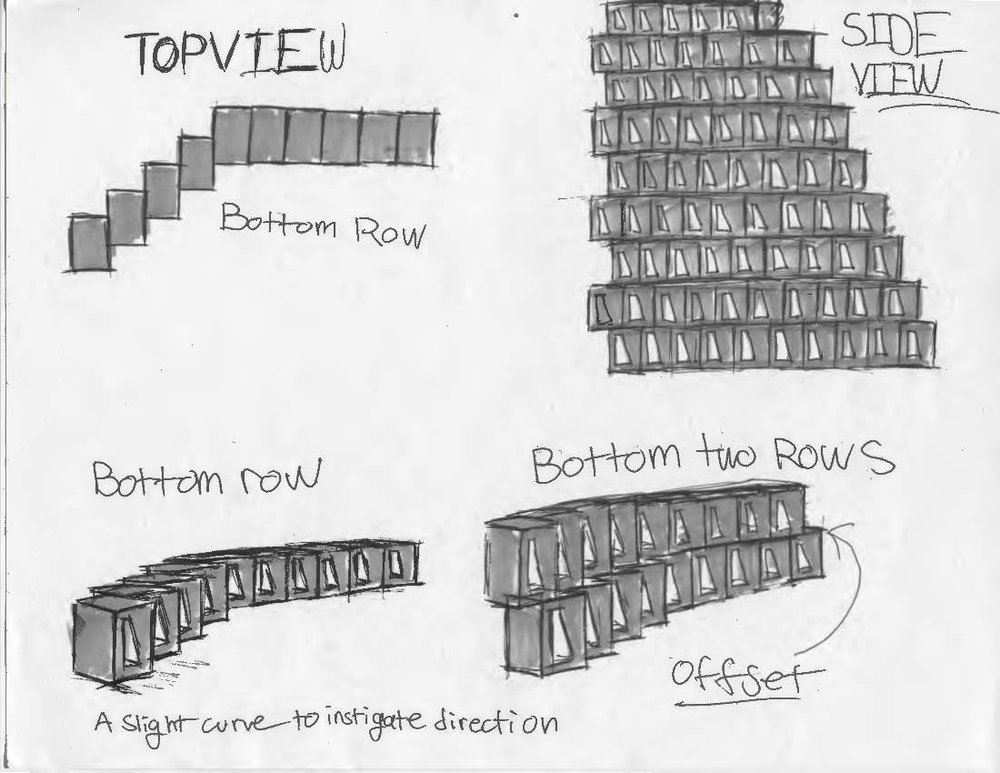 TOPVIEW
SIDE
VIEW
Bottom Row
Bottom row
Bottom two Rows
offset
A slight curve to instigate direction